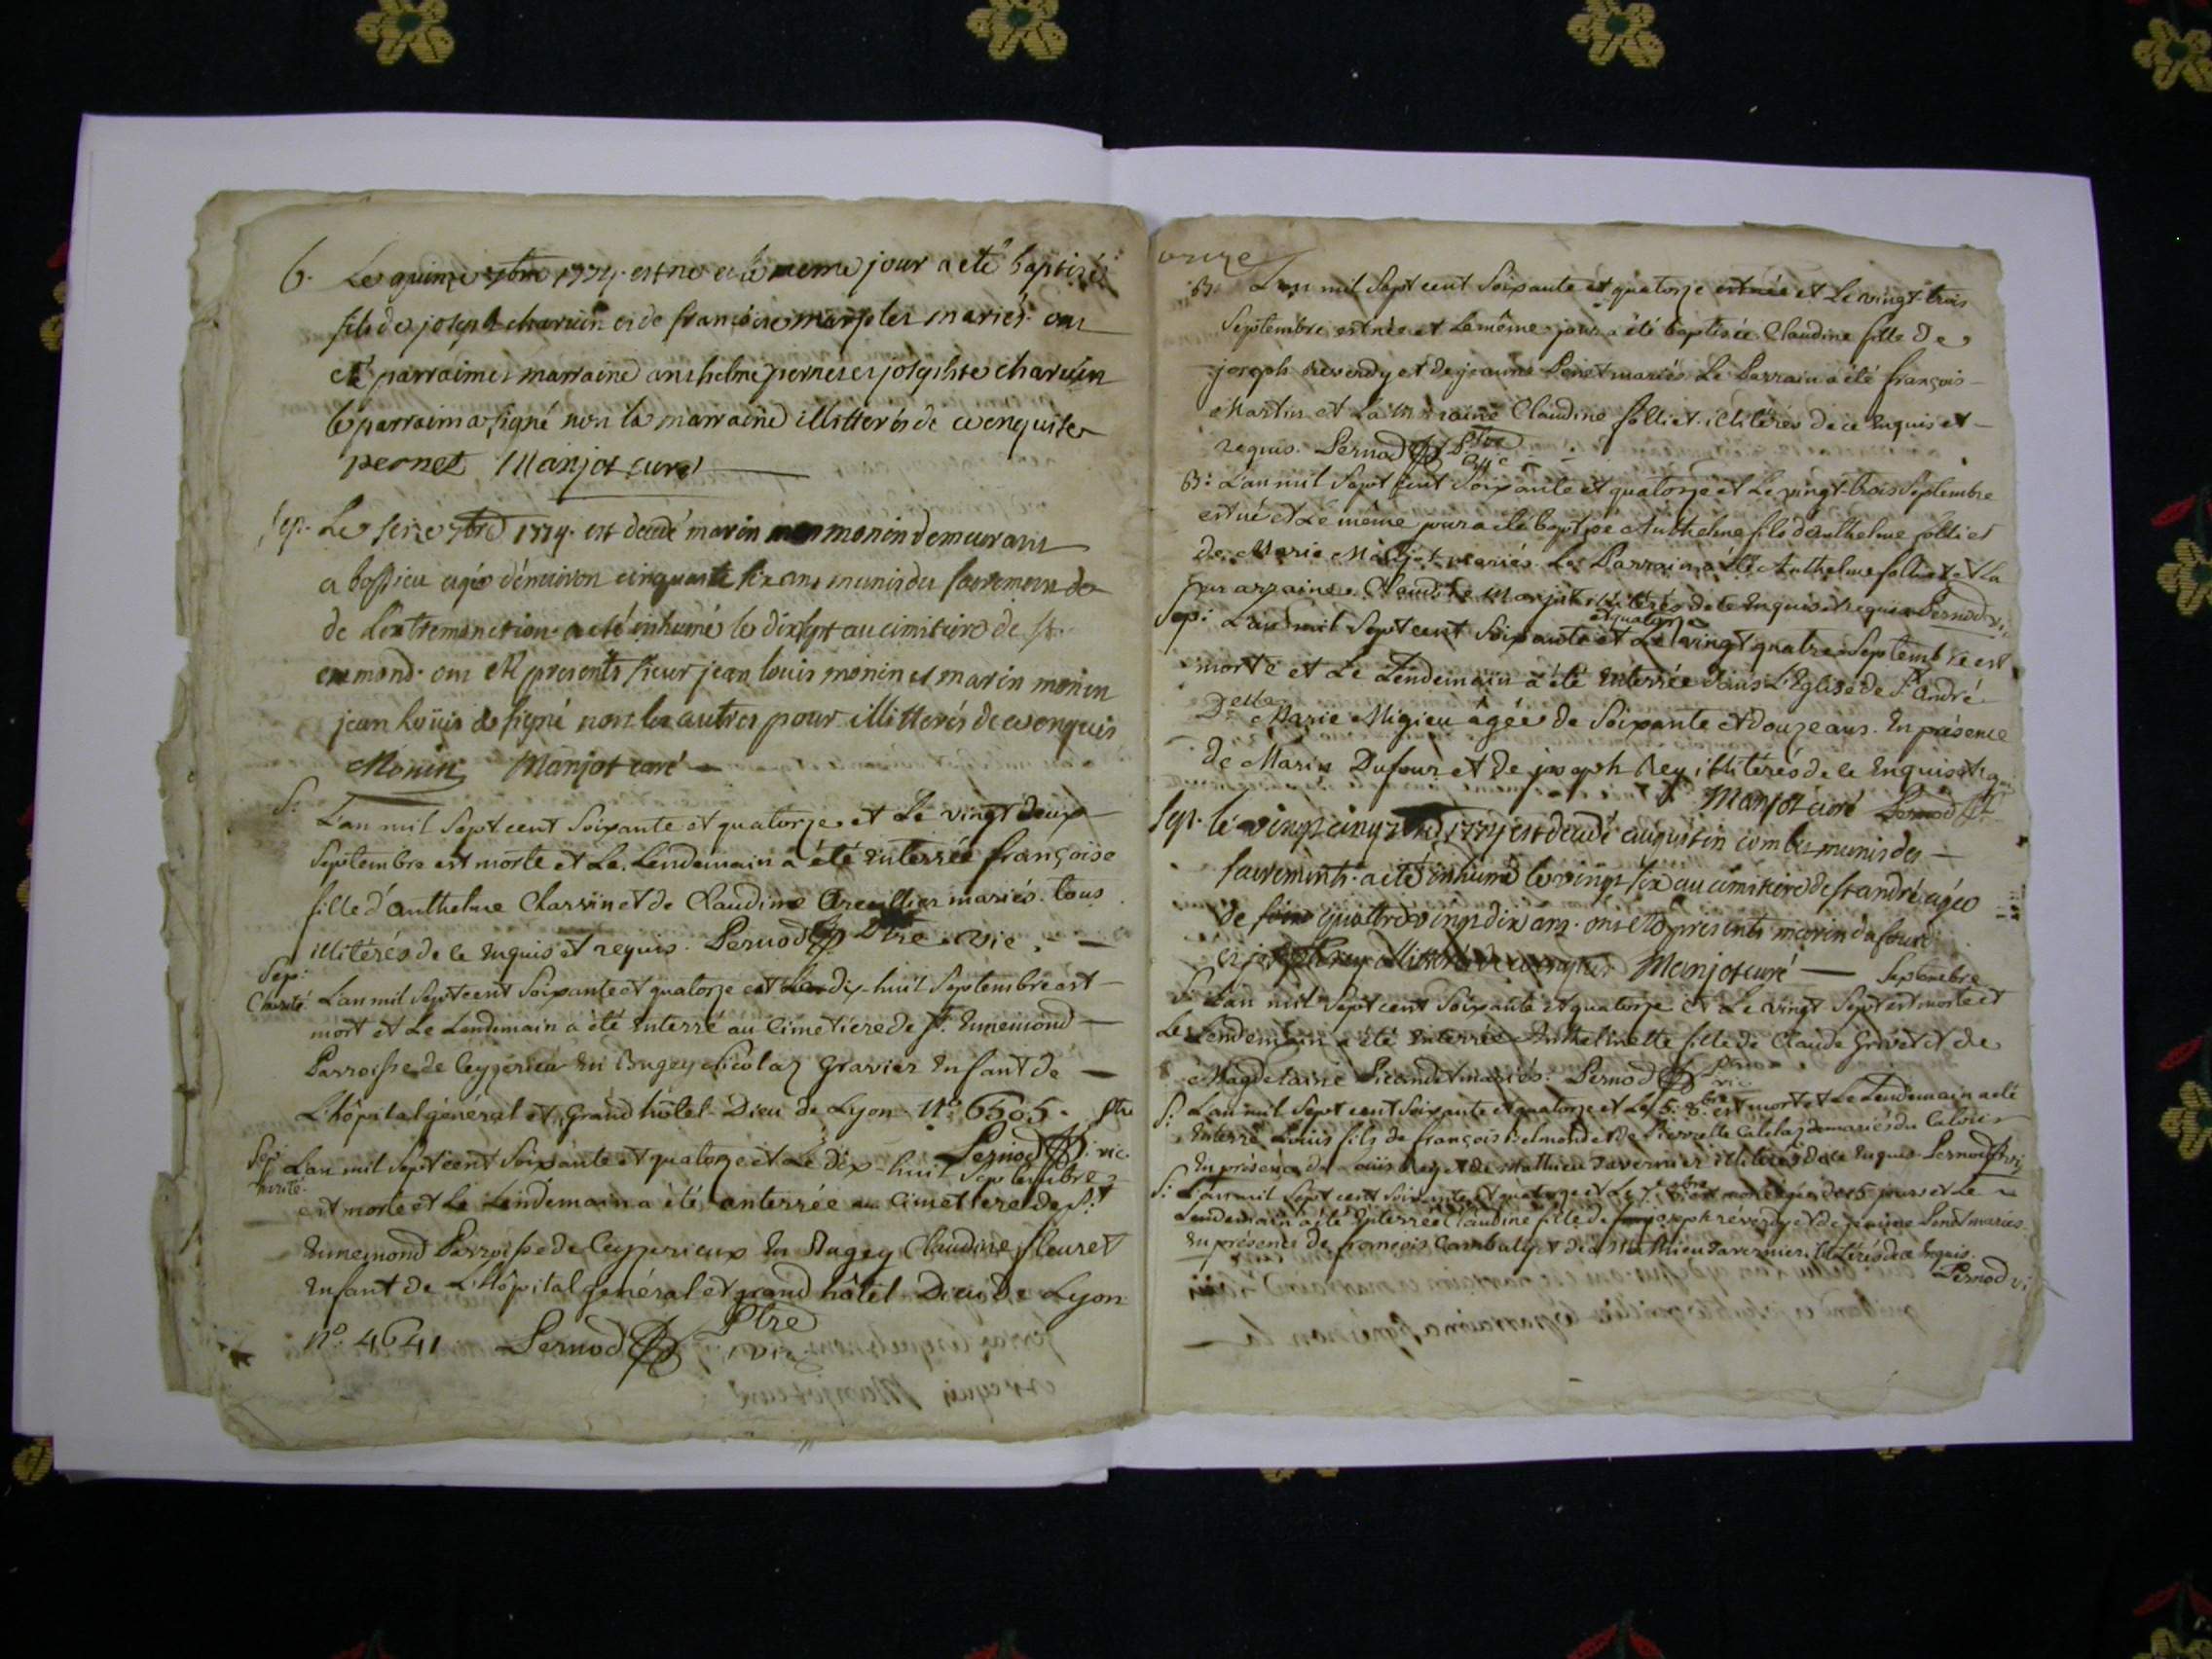 B. Le quinze 7bre 1774. est né et le meme jour a eté baptizé
fils de joseph charvin et de françoise mariés ont
eté parrain et marraine anthelme pernet et josephte charvin
le parrain a signé non la marraine illitterés de ce enquise
pernet Manjot curé
Sep. Le seize 7bre 1774. est decedé marin monin demeurant
a bossieu agé d'environ cinquante six ans munis du sacrement de
de L'extremonction a eté inhumé le dixsept au cimitiere de st
enemond. ont eté presents sieur jean louis monin et marin monin
jean Loüis a signé non les autres pour illitterés de ce enquis
Monin Manjot curé
S: L'an mil Sept cent Soixante et quatorze et Le vingt deux
Septembre est morte et Le Lendemain a été enterrée françoise
fille d'anthelme Charvin et de Claudine mariés. tous
illiterés de ce enquis et requis. Pernod Ptre vic.
Sep: Charité L'an mil Sept cent Soixante et quatorze et Le dix-huit Septembre est
mort et Le Lendemain a été enterré au Cimetiere de St. Ennemond
Parroisse de Ceyzerieu en Bugey Nicolas Gravier Enfant de
L'hôpital général et grand hôtel-Dieu de Lyon. N° 6505. Ptre
Pernod vic.
Sep: L'an mil Sept cent Soixante et quatorze et Le dix-huit Septembre
est morte et Le Lendemain a été enterrée au Cimetiere de St.
Ennemond Parroisse de Ceyzerieux en Bugey Claudine fleuret
enfant de L'hôpital général et grand hôtel-Dieu de Lyon
N°. 4641 Pernod Ptre vic.
onze
B: L'an mil Sept cent Soixante et quatorze et Le vingt-trois
Septembre est née et Le même jour a été baptisée Claudine fille de
joseph reverdy et de jeanne Penet mariés. Le Parrain a été françois
Martin et La Marraine Claudine folliet. illitérés de ce Enquis et
requis. Pernod Ptre vic
B: L'an mil Sept cent Soixante et quatorze et Le vingt-trois Septembre
est né et Le même jour a été baptisé Anthelme fils d'anthelme folliet
de Marie Manjot mariés. Le Parrain a été Anthelme folliet et La
marraine Claudine Manjot illitérés de ce Enquis et requis Pernod vic
Sep: L'an mil Sept cent Soixante et quatorze et Le vingt quatre Septembre est
morte et Le Lendemain a été enterrée dans L'Eglise de St. André
Delle Marie Migieu âgée de Soixante et douze ans. En présence
de Marin Dufour et de joseph Rey illitérés de ce Enquis et
Manjot curé Pernod
Sep. le vingt cinq 7bre 1774 est decedé augustin combe munis des
sacrements. a eté inhumé le vingt six au cimitiere de st andré agé
de quattre vingt dix ans. ont eté presents marin dufour
et joseph rey illitterés de ce enquis Manjot curé
S: L'an mil Sept cent Soixante et quatorze et Le vingt-Sept Septembre est morte et
Le Lendemain a été enterrée Anthelmette fille de Claude Grivet et de
Magdelaine mariés. Pernod Ptre vic
S: L'an mil Sept cent Soixante et quatorze et Le 5: 8.bre est mort et Le Lendemain a été
enterré Loüis fils de françois Belmond et de mariés
En présence de Loüis Rey et de Mathieu Tavernier illitérés de ce Enquis Pernod vic
S: L'an mil Sept cent Soixante et quatorze et Le 7. 8bre est morte âgée de 15 jours et Le
Lendemain a été enterrée Claudine fille de joseph réverdy et de jeanne Penet mariés.
En présence de françois et de Mathieu Tavernier illitérés de ce Enquis.
Pernod vi